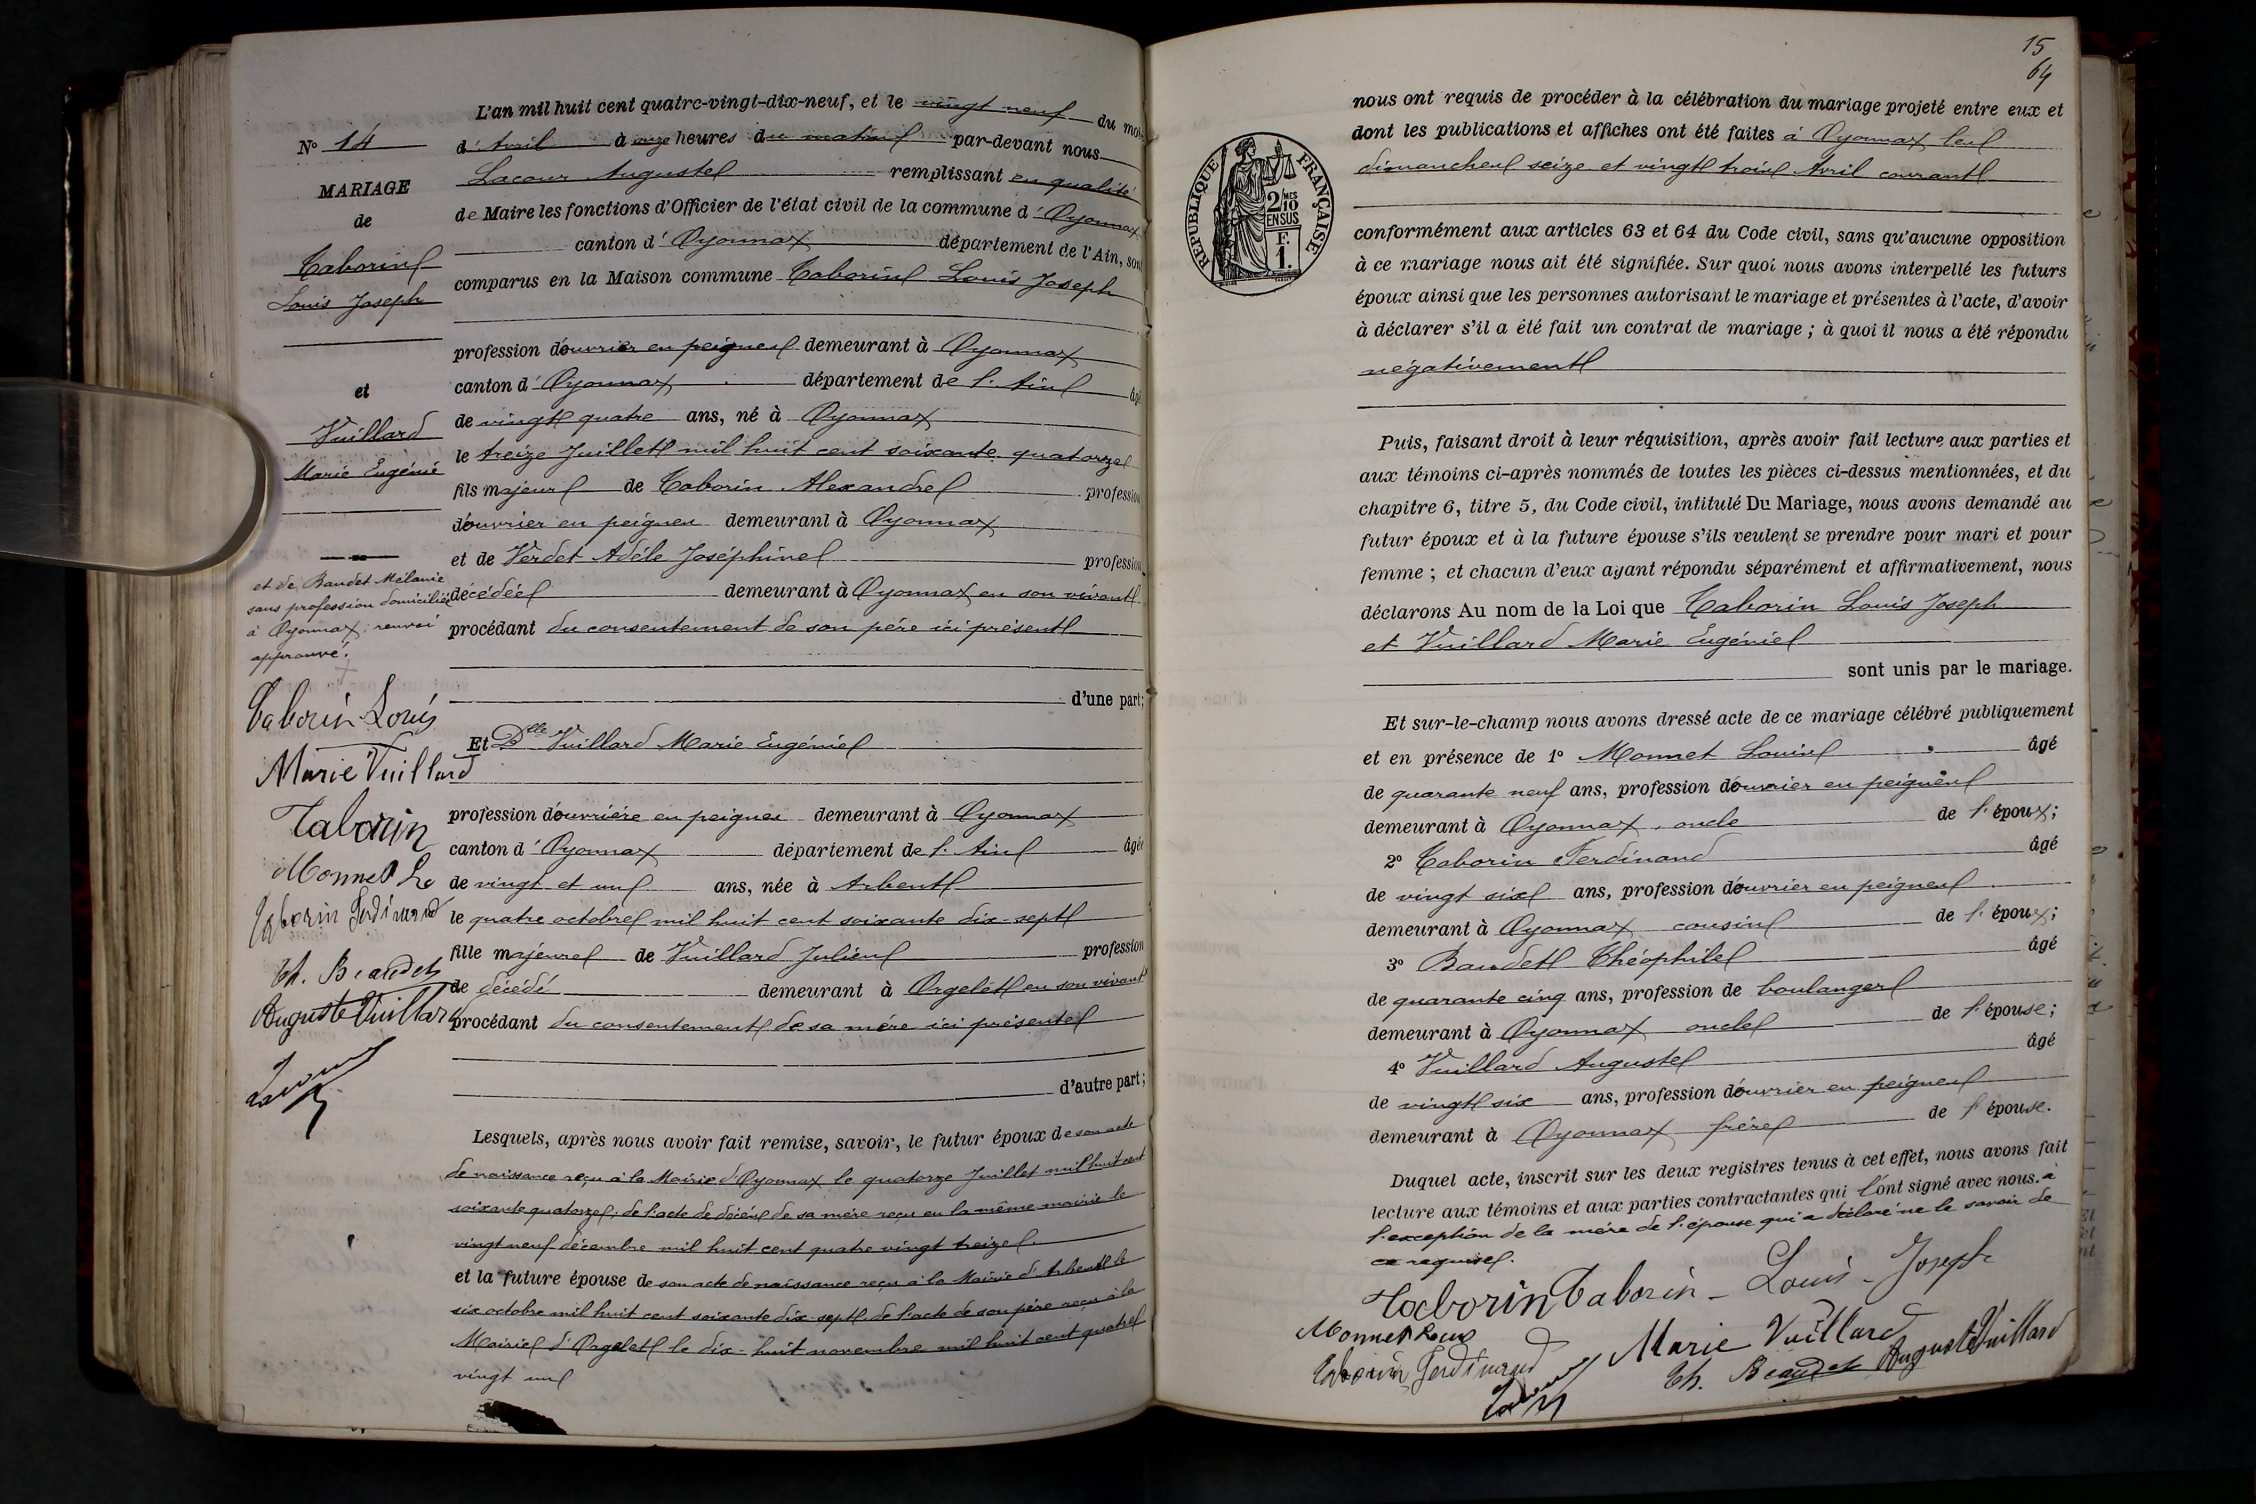 N° 14
MARIAGE
de
Taborin
Louis Joseph
et
Vuillard
Marie Eugénie
et de Baudet Mélanie
sans profession domiciliée
à Oyonnax, renvoi
approuvé.
Taborin Louis
Marie Vuillard
Taborin
Monnet Ls
Taborin Ferdinand
Th. Beaudet
Auguste Vuillard
Lacour
L'an mil huit cent quatre-vingt-dix-neuf, et le vingt neuf du mois
d'Avril à onze heures du matin par-devant nous
Lacour Auguste remplissant en qualité
de Maire les fonctions d'Officier de l'état civil de la commune d'Oyonnax
canton d'Oyonnax département de l'Ain, sont
comparus en la Maison commune Taborin Louis Joseph
profession d'ouvrier en peignes demeurant à Oyonnax
canton d'Oyonnax département de l'Ain âgé
de vingt quatre ans, né à Oyonnax
le treize Juillet mil huit cent soixante quatorze
fils majeur de Taborin Alexandre profession
d'ouvrier en peignes demeurant à Oyonnax
et de Verdet Adèle Joséphine profession
décédée demeurant à Oyonnax en son vivant
procédant du consentement de son père ici présent
d'une part;
Et Dlle Vuillard Marie Eugénie
profession d'ouvrière en peignes demeurant à Oyonnax
canton d'Oyonnax département de l'Ain âgée
de vingt et un ans, née à Arbent
le quatre octobre mil huit cent soixante dix-sept
fille majeure de Vuillard Julien profession
de décédé demeurant à Orgelet en son vivant
procédant du consentement de sa mère ici présente
d'autre part;
Lesquels, après nous avoir fait remise, savoir, le futur époux de son acte
de naissance reçu à la Mairie d'Oyonnax le quatorze Juillet mil huit cent
soixante quatorze, de l'acte de décès de sa mère reçu en la même mairie le
vingt neuf décembre mil huit cent quatre vingt treize.
et la future épouse de son acte de naissance reçu à la Mairie d'Arbent le
six octobre mil huit cent soixante dix-sept, de l'acte de son père reçu à la
Mairie d'Orgelet le dix-huit novembre mil huit cent quatre
vingt un
15
64
REPUBLIQUE FRANÇAISE
2/10 MES
EN SUS
F.
1.
nous ont requis de procéder à la célébration du mariage projeté entre eux et
dont les publications et affiches ont été faites à Oyonnax les
dimanches seize et vingt trois Avril courant
conformément aux articles 63 et 64 du Code civil, sans qu'aucune opposition
à ce mariage nous ait été signifiée. Sur quoi nous avons interpellé les futurs
époux ainsi que les personnes autorisant le mariage et présentes à l'acte, d'avoir
à déclarer s'il a été fait un contrat de mariage ; à quoi il nous a été répondu
négativement
Puis, faisant droit à leur réquisition, après avoir fait lecture aux parties et
aux témoins ci-après nommés de toutes les pièces ci-dessus mentionnées, et du
chapitre 6, titre 5, du Code civil, intitulé Du Mariage, nous avons demandé au
futur époux et à la future épouse s'ils veulent se prendre pour mari et pour
femme ; et chacun d'eux ayant répondu séparément et affirmativement, nous
déclarons Au nom de la Loi que Taborin Louis Joseph
et Vuillard Marie Eugénie
sont unis par le mariage.
Et sur-le-champ nous avons dressé acte de ce mariage célébré publiquement
et en présence de 1° Monnet Louis âgé
de quarante neuf ans, profession d'ouvrier en peignes
demeurant à Oyonnax, oncle de l'époux;
2° Taborin Ferdinand âgé
de vingt six ans, profession d'ouvrier en peignes
demeurant à Oyonnax cousin de l'époux;
3° Baudet Théophile âgé
de quarante cinq ans, profession de boulanger
demeurant à Oyonnax oncle de l'épouse;
4° Vuillard Auguste âgé
de vingt six ans, profession d'ouvrier en peignes
demeurant à Oyonnax frère de l'épouse.
Duquel acte, inscrit sur les deux registres tenus à cet effet, nous avons fait
lecture aux témoins et aux parties contractantes qui l'ont signé avec nous. à
l'exception de la mère de l'épouse qui a déclaré ne le savoir de
ce requise.
Taborin Taborin - Louis - Joseph
Monnet Louis
Marie Vuillard
Taborin Ferdinand
Lacour
Th. Beaudet Auguste Vuillard